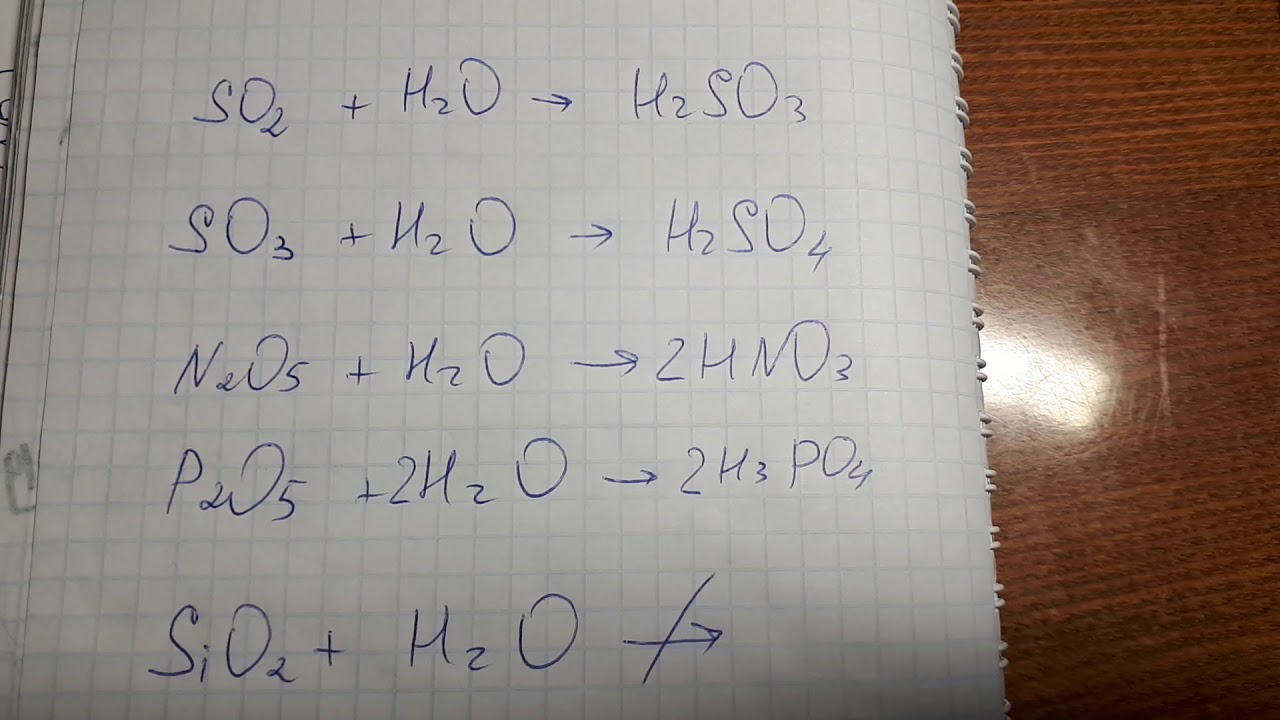 SO₂ + H₂O → H₂SO₃
SO₃ + H₂O → H₂SO₄
N₂O₅ + H₂O → 2HNO₃
P₂O₅ + 2H₂O → 2H₃PO₄
SiO₂ + H₂O ↛